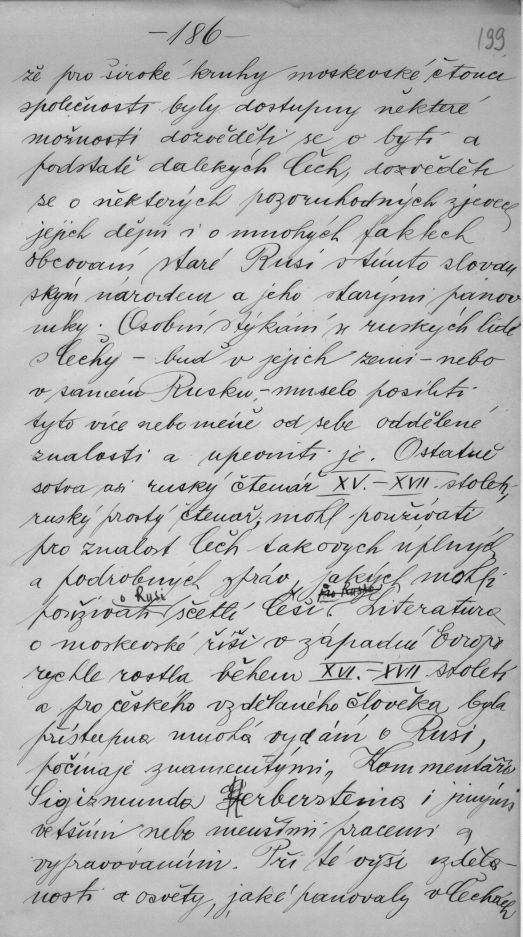 -186-
199
že pro široké kruhy moskevské čtoucí
společnosti byly dostupny některé
možnosti dozvěděti se o bytí a
podstatě dalekých Čech, dozvěděti
se o některých pozoruhodných zjevech
jejich dějin i o mnohých faktech
obcování staré Rusi s tímto slovan
ským národem a jeho starými panov
níky. Osobní stýkání se ruských lidí
s Čechy - buď v jejich zemi - nebo
v samém Rusku, - muselo posíliti
tyto více nebo méně od sebe oddělené
znalosti a upevniti je. Ostatně
sotva asi ruský čtenář XV. - XVII. století,
ruský prostý čtenář, mohl používati
pro znalost Čech takových úplných
a podrobných zpráv, jakých mohli
o Rusi pro Rusko
používati sčetlí Češi. Literatura
o moskevské říši v západní Evropě
rychle rostla během XVI. - XVII. století
a pro českého vzdělaného člověka byla
přístupna mnohá vydání o Rusi,
počínaje znamenitými, Kommentáři
Sigizmunda Herbersteina i jinými
většími nebo menšími pracemi a
vypravováními. Při té výši vzděla-
nosti a osvěty, jaké panovaly v Čechách